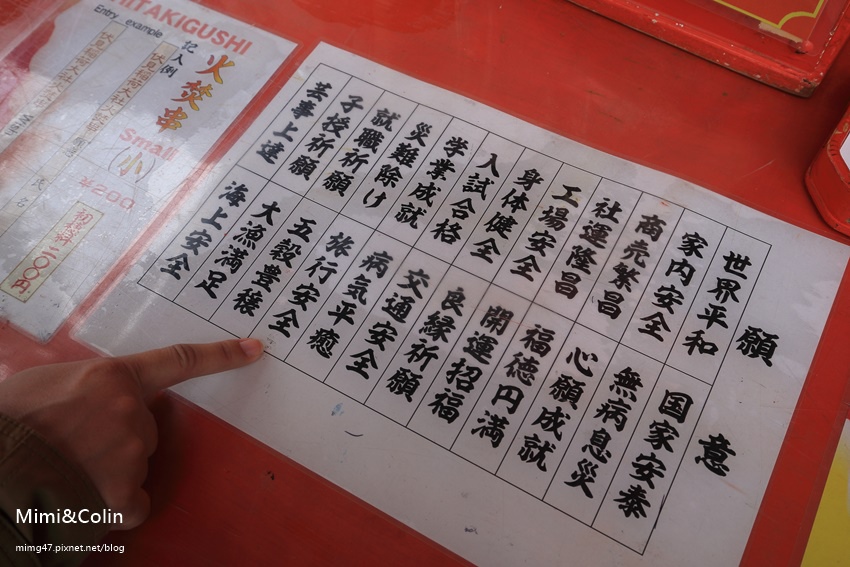 HITAKIGUSHI
Entry example
火焚串
記入例
Small
(小)
¥200
初穂料 二〇〇円
氏名
願意
世界平和
家内安全
商売繁昌
社運隆昌
工場安全
身体健全
入試合格
学業成就
災難除け
就職祈願
子授祈願
芸事上達
国家安泰
無病息災
心願成就
福徳円満
開運招福
良縁祈願
交通安全
病気平癒
旅行安全
五穀豊穣
大漁満足
海上安全
Mimi&Colin
mimg47.pixnet.net/blog